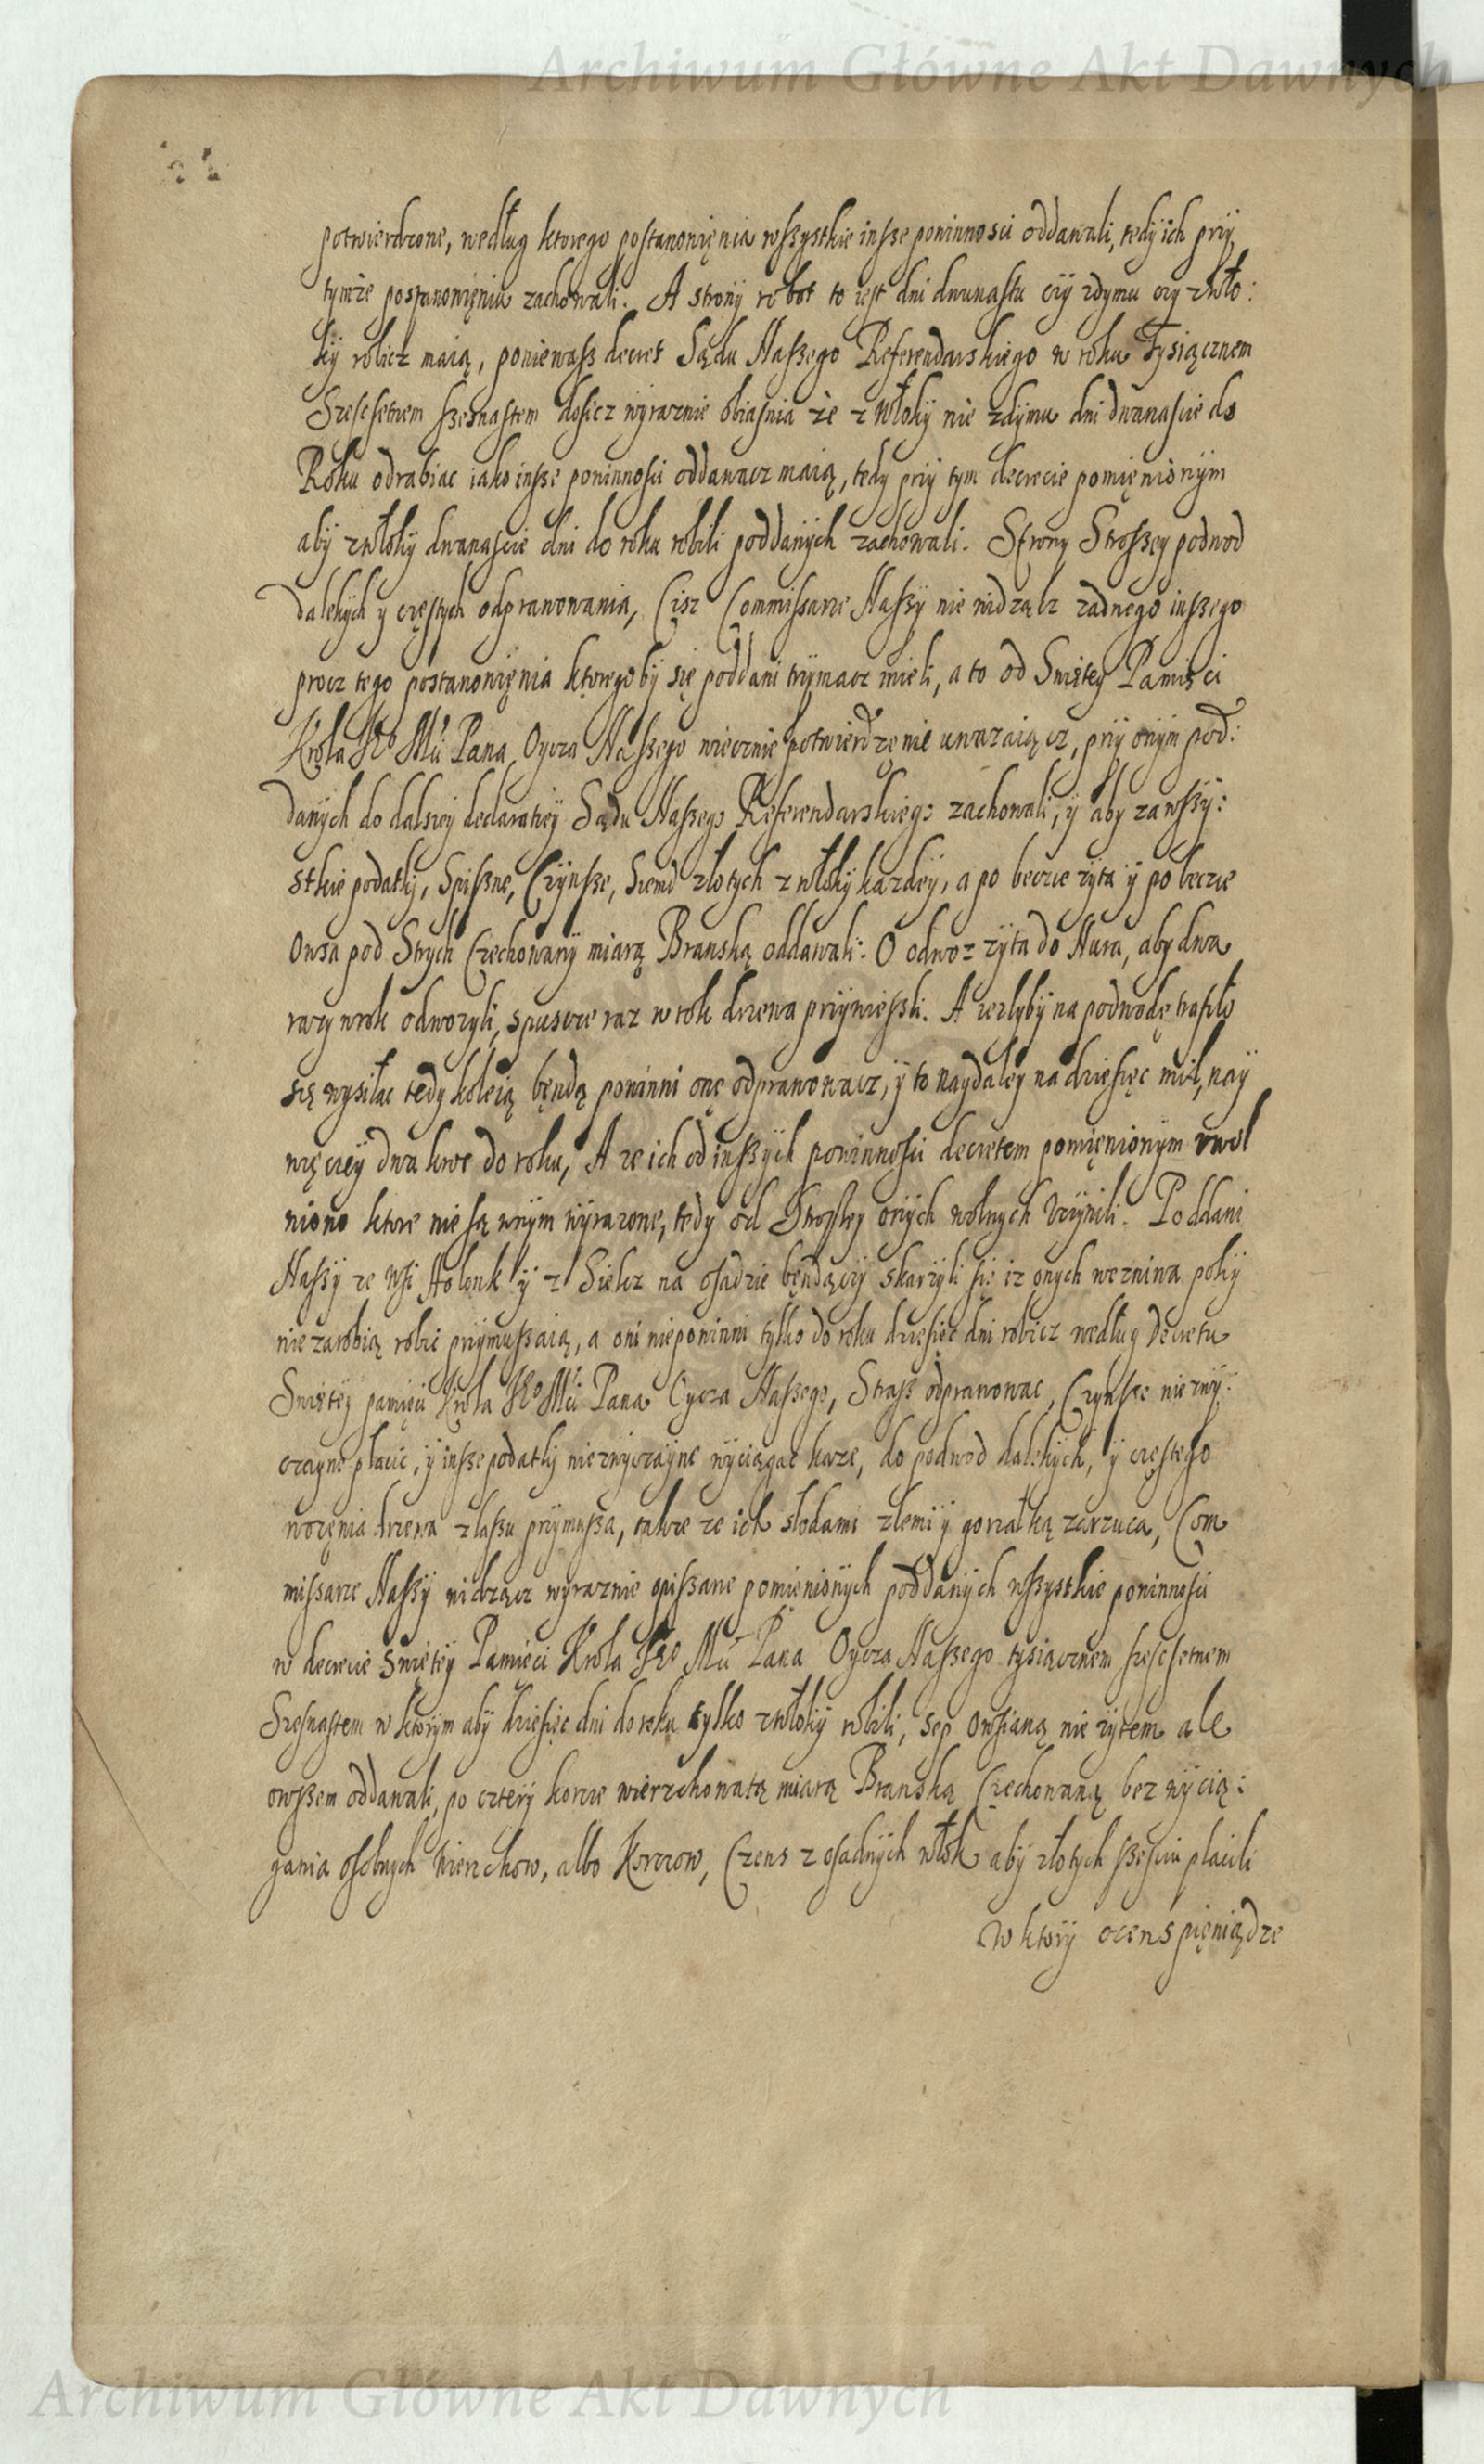 Archiwum Główne Akt Dawnych
potwierdzone, według ktorego postanowięnia wszystkie insze powinnosci oddawali, tedy ich przÿ
tymże postanowięniu zachowali. A stronÿ robot to iest dni dwunastu czÿ zdymu czy zwło:
kÿ robicz maią, poniewasz decret Sądu Naszego Referendarskiego w roku Tysiącznem
Szescsetnem szesnastem dosicz wÿraznie obiasnia że z włokÿ nie zdÿmu dni dwanascie do
Roku odrabiac iako insze powinnosci oddawacz maią, tedy przÿ tym decrecie pomięnionÿm
abÿ zwłokÿ dwanascie dni do roku robili poddanÿch zachowali. Strony Strożey podwod
dalekÿch y częstych odprawowania, Cisz Commissarze Naszÿ nie widzącz zadnego inszego
procz tego postanowięnia ktoregobÿ się poddani trzÿmacz mieli, a to od Swiętey Pamięci
Krola Je͞o Mći Pana Oycza Naszego wiecznie potwierdzęnie uwazaiącz, przÿ onÿm pod:
danÿch do dalszeÿ declaratieÿ Sądu Naszego Referendarskiego zachowali, ÿ abÿ zawszÿ:
stkie podatkÿ, Spiszne, Czÿnsze, Siemd złotych z włokÿ kazdeÿ, a po beczce zÿta ÿ po beczce
Owsa pod Strych Czechowanÿ miarą Branską oddawali: O odwoz zÿta do Nura, aby dwa
razy wrok odwozyli, spuscze raz w rok drzewa przÿwieszli. A iezlybÿ na podwodę trafiło
się wysiłac tedy koleią będą powinni onę odprawowacz, ÿ to naydaleÿ na dziesięc mil, naÿ
więczeÿ dwa kroc do roku, A ze ich od inszÿch powinnosci decretem pomięnionÿm vwol
niono ktore nie są wnÿm wÿrazone, tedy od Strożey onÿch wolnych Vczÿnili. Poddani
Naszÿ ze wsi Holonk ÿ z Sielcz na osadzie będączÿ skarzÿli się iz onych weznina pokÿ
nie zarobią robic przÿmuszaią, a oni niepowinni tylko do roku dziesięc dni robicz według decretu
Swięteÿ pamięci Krola Je͞o Mći Pana Oycza Naszego, Straz odprawowac, Czÿnsze niezwÿ:
czayne płacic, ÿ insze podatkÿ niezwÿczaÿne wÿciągac kaze, do podwod dalekÿch, ÿ częstego
wozęnia drzewa zlassu przÿmusza, takze ze ich słodami zlemi ÿ gorzałką zarzuca, Com
missarze Naszÿ widzącz wyraznie opiszane pomięnionÿch poddanÿch wszystkie powinnosci
w decrecie Swięteÿ Pamięci Krola Je͞o Mći Pana Oycza Naszego tysiącznem szescsetnem
Szesnastem w ktorÿm abÿ dziesięc dni do roku tylko zwłokÿ robili, sep owsianą nie zÿtem ale
owszem oddawali, po czterÿ korcze wierzchowatą miarą Branską Czechowaną bez wÿcią:
gania osobnych Wierzchow, albo Korczow, Czens z osadnÿch włok abÿ złotych szesciu placili
w ktorÿ czens pięniądze
Archiwum Główne Akt Dawnych